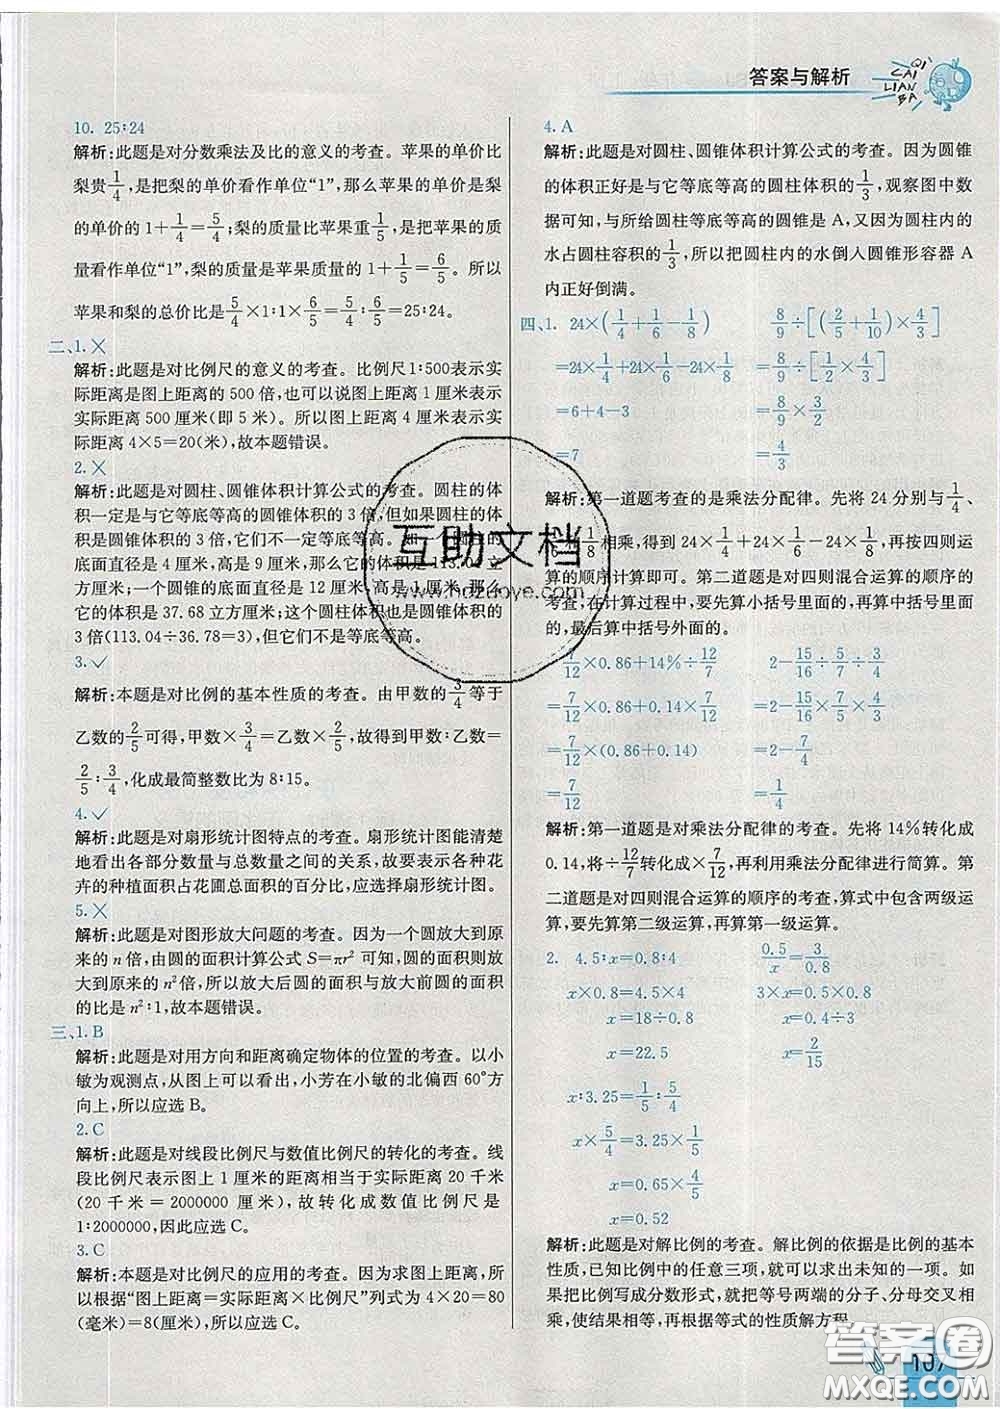 答案与解析
QI
CAI
LIAN
BA
10. 25∶24
解析:此题是对分数乘法及比的意义的考查。苹果的单价比
梨贵1/4,是把梨的单价看作单位“1”,那么苹果的单价是梨
的单价的 1+1/4=5/4;梨的质量比苹果重1/5,是把苹果的质
量看作单位“1”,梨的质量是苹果质量的 1+1/5=6/5。所以
苹果和梨的总价比是5/4×1∶1×6/5=5/4∶6/5=25∶24。
二、1. ×
解析:此题是对比例尺的意义的考查。比例尺1∶500表示实
际距离是图上距离的 500 倍,也可以说图上距离 1 厘米表示
实际距离 500 厘米(即 5 米)。所以图上距离 4 厘米表示实
际距离 4×5=20(米),故本题错误。
2. ×
解析:此题是对圆柱、圆锥体积计算公式的考查。圆柱的体
积一定是与它等底等高的圆锥体积的 3 倍,但如果圆柱的体
积是圆锥体积的 3 倍,它们不一定等底等高。如一个圆柱的
底面直径是 4 厘米,高是 9 厘米,那么它的体积是 113.04 立
方厘米;一个圆锥的底面直径是 12 厘米,高是 1 厘米,那么
它的体积是 37.68 立方厘米;这个圆柱体积也是圆锥体积的
3 倍(113.04÷36.78=3),但它们不是等底等高。
3. ✓
解析:本题是对比例的基本性质的考查。由甲数的3/4等于
乙数的2/5可得,甲数×3/4=乙数×2/5,故得到甲数∶乙数=
2/5∶3/4,化成最简整数比为 8∶15。
4. ✓
解析:此题是对扇形统计图特点的考查。扇形统计图能清楚
地看出各部分数量与总数量之间的关系,故要表示各种花
卉的种植面积占花圃总面积的百分比,应选择扇形统计图。
5. ×
解析:此题是对图形放大问题的考查。因为一个圆放大到原
来的 n 倍,由圆的面积计算公式 S=πr² 可知,圆的面积则放
大到原来的 n² 倍,所以放大后圆的面积与放大前圆的面积
的比是 n²∶1,故本题错误。
三、1. B
解析:此题是对用方向和距离确定物体的位置的考查。以小
敏为观测点,从图上可以看出,小芳在小敏的北偏西 60°方
向上,所以应选 B。
2. C
解析:此题是对线段比例尺与数值比例尺的转化的考查。线
段比例尺表示图上 1 厘米的距离相当于实际距离 20 千米
(20 千米 = 2000000 厘米),故转化成数值比例尺是
1∶2000000,因此应选 C。
3. C
解析:本题是对比例尺的应用的考查。因为求图上距离,所
以根据“图上距离=实际距离×比例尺”列式为 4×20=80
(毫米)=8(厘米),所以应选 C。
4. A
解析:此题是对圆柱、圆锥体积计算公式的考查。因为圆锥
的体积正好是与它等底等高的圆柱体积的1/3,观察图中数
据可知,与所给圆柱等底等高的圆锥是 A,又因为圆柱内的
水占圆柱容积的1/3,所以把圆柱内的水倒入圆锥形容器 A
内正好倒满。
四、1. 24×(1/4+1/6−1/8) 8/9÷[(2/5+1/10)×4/3]
=24×1/4+24×1/6−24×1/8 =8/9÷[1/2×4/3]
=6+4−3 =8/9×3/2
=7 =4/3
解析:第一道题考查的是乘法分配律。先将 24 分别与1/4、
1/6、1/8相乘,得到 24×1/4+24×1/6−24×1/8,再按四则运
算的顺序计算即可。第二道题是对四则混合运算的顺序的
考查,在计算过程中,要先算小括号里面的,再算中括号里面
的,最后算中括号外面的。
7/12×0.86+14%÷12/7 2−15/16÷5/7÷3/4
=7/12×0.86+0.14×7/12 =2−15/16×7/5×4/3
=7/12×(0.86+0.14) =2−7/4
=7/12 =1/4
解析:第一道题是对乘法分配律的考查。先将 14%转化成
0.14,将÷12/7转化成×7/12,再利用乘法分配律进行简算。第
二道题是对四则混合运算的顺序的考查,算式中包含两级运
算,要先算第二级运算,再算第一级运算。
2. 4.5∶x=0.8∶4 0.5/x=3/0.8
x×0.8=4.5×4 3×x=0.5×0.8
x=18÷0.8 x=0.4÷3
x=22.5 x=2/15
x∶3.25=1/5∶5/4
x×5/4=3.25×1/5
x=0.65×4/5
x=0.52
解析:此题是对解比例的考查。解比例的依据是比例的基本
性质,已知比例中的任意三项,就可以求出未知的一项。如
果把比例写成分数形式,就把等号两端的分子、分母交叉相
乘,使结果相等,再根据等式的性质解方程。
互助文档
www.hdzuoye.com
答案圈
MXQE.COM
107